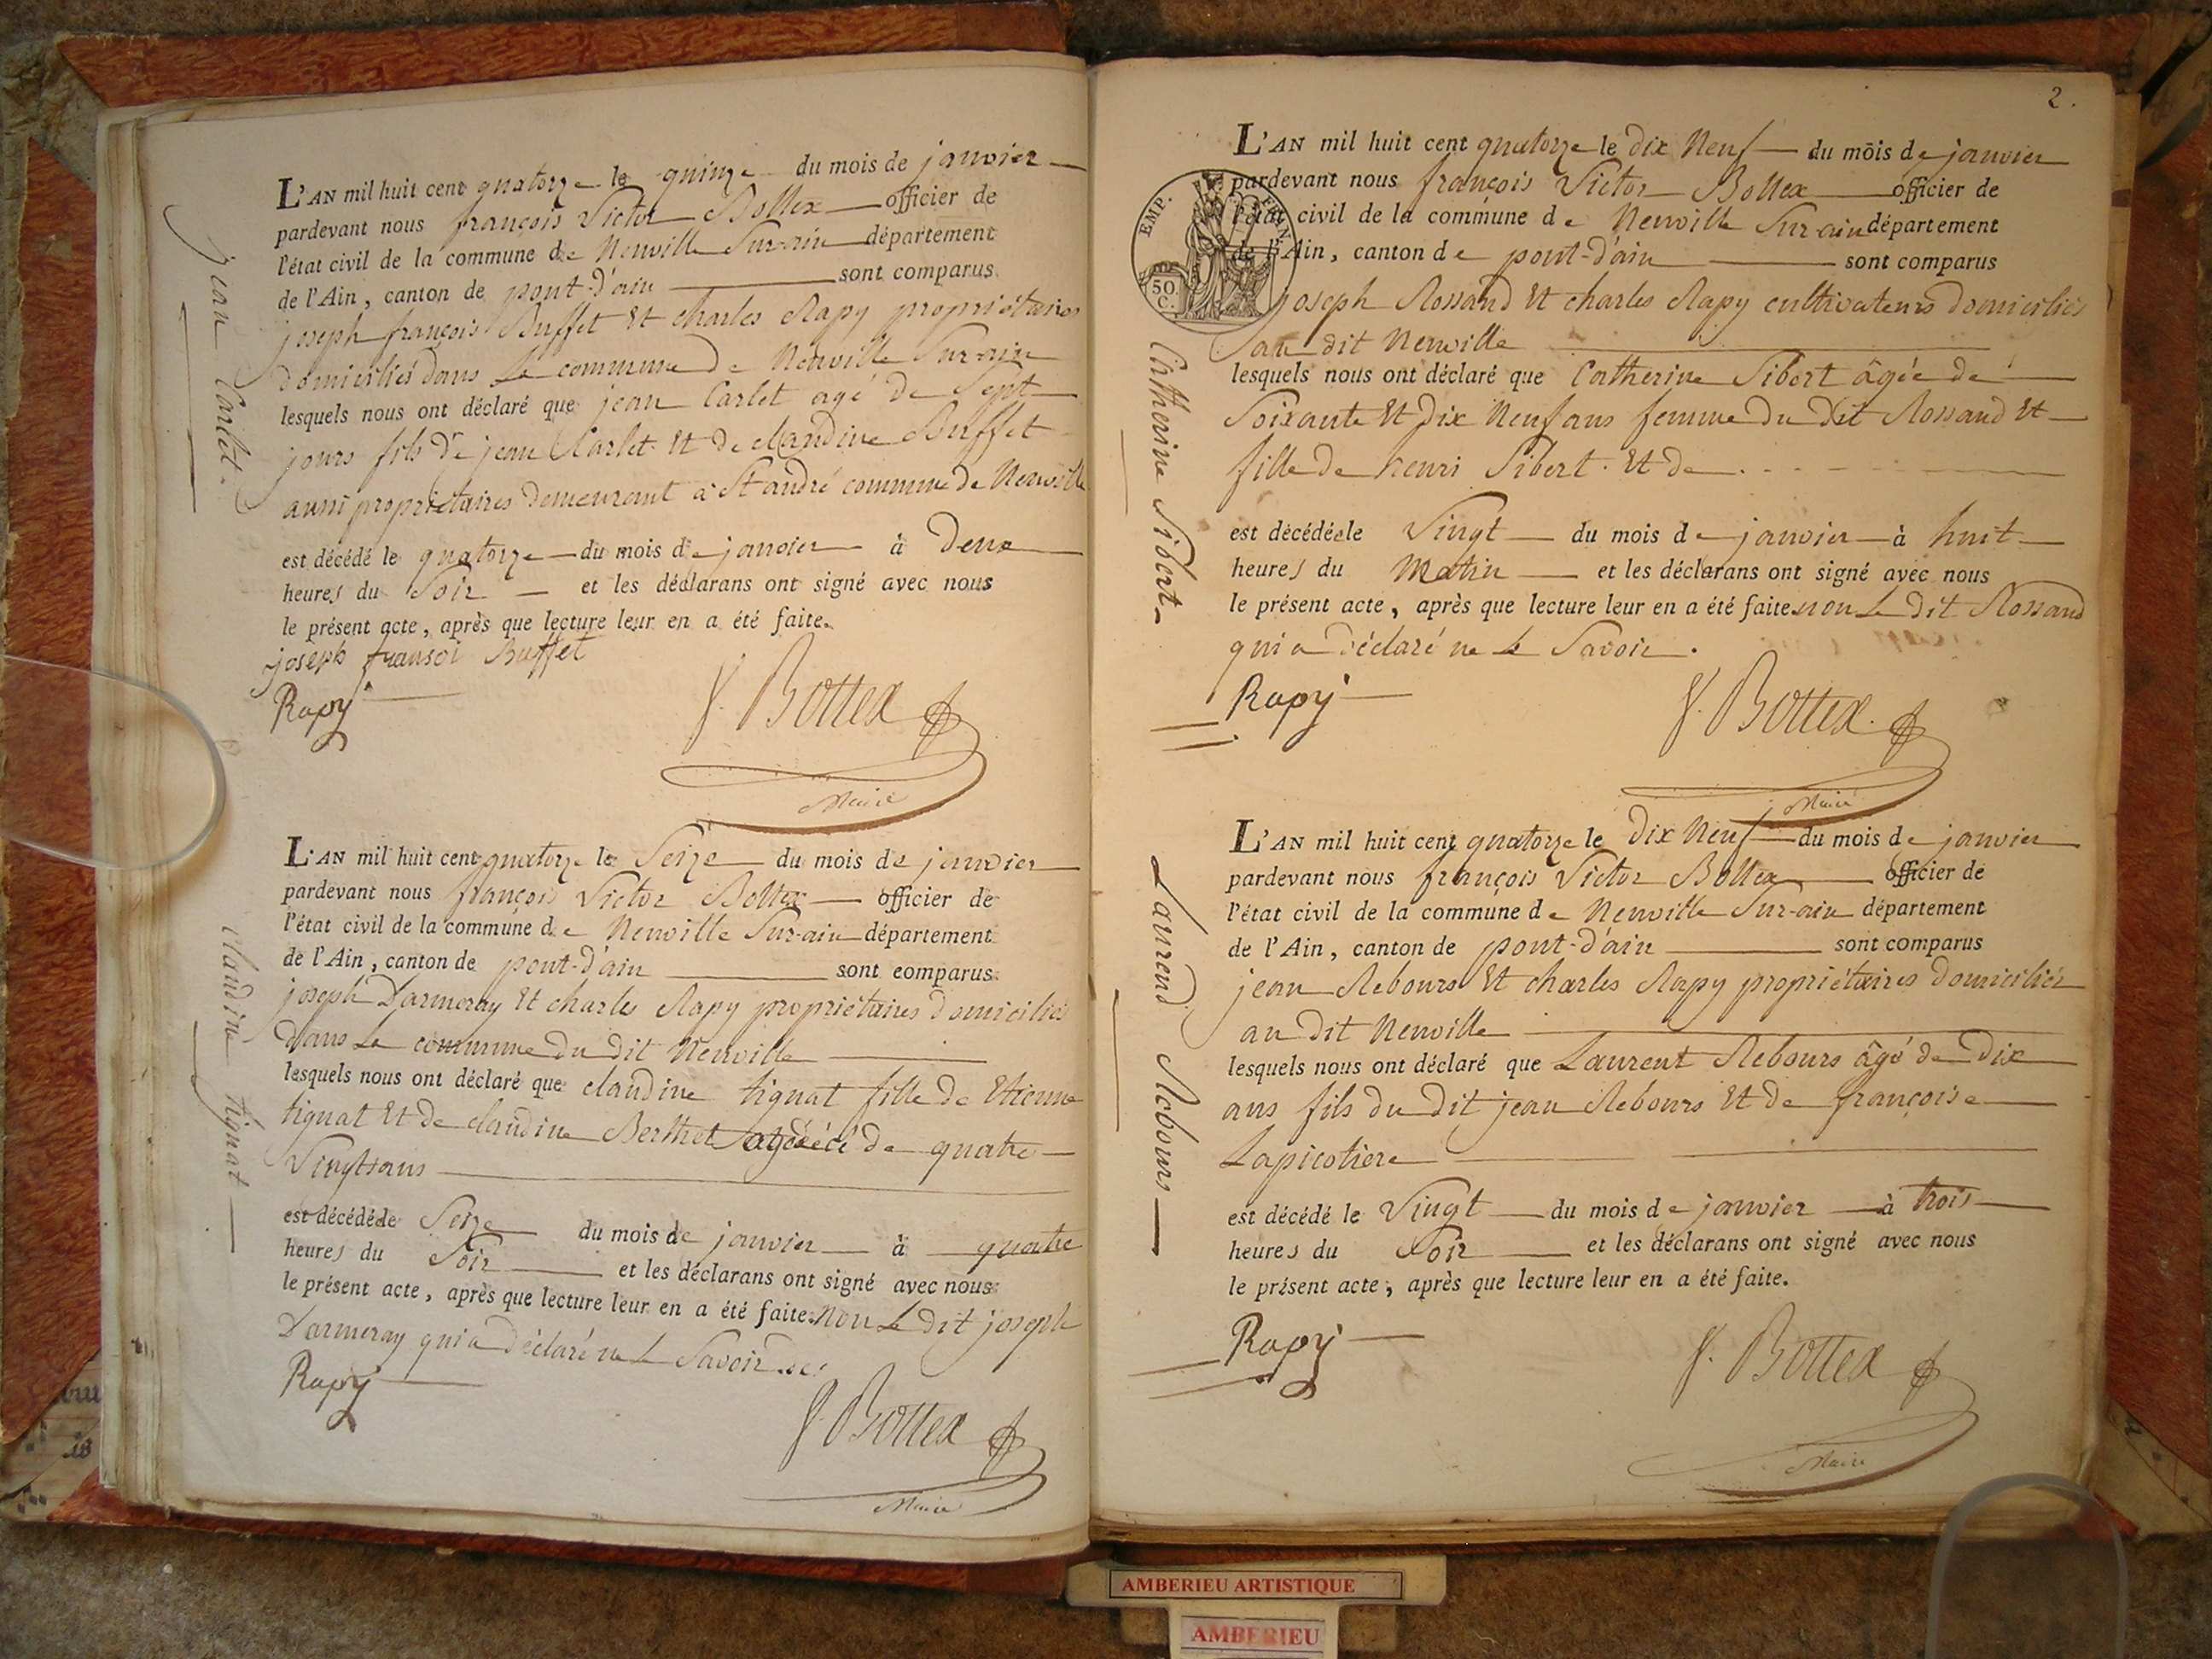 L'AN mil huit cent quatorze le quinze du mois de janvier
pardevant nous françois Victor Bottex officier de
l'état civil de la commune de Neuville Sur-ain département
de l'Ain, canton de pont-d'ain sont comparus
joseph françois Buffet Et charles Rapy propriétaires
domiciliés dans la commune de Neuville Sur-ain
lesquels nous ont déclaré que jean Carlet agé de Sept
jours fils de jean Carlet Et de claudine Buffet
aussi propriétaires demeurant a St andré commune de Neuville
est décédé le quatorze du mois de janvier à Deux
heures du Soir et les déclarans ont signé avec nous
le présent acte, après que lecture leur en a été faite.
joseph fransoi Buffet
Rapy
f. Bottex
Maire
jean Carlet.
L'AN mil huit cent quatorze le Seize du mois de janvier
pardevant nous françois Victor Bottex officier de
l'état civil de la commune de Neuville Sur-ain département
de l'Ain, canton de pont-d'ain sont comparus
joseph Darmeray Et charles Rapy propriétaires domiciliés
dans la commune du dit Neuville
lesquels nous ont déclaré que claudine tignat fille de Etienne
tignat Et de claudine Berthet de quatre
Vingts ans
est décédée le Seize du mois de janvier à quatre
heures du Soir et les déclarans ont signé avec nous
le présent acte, après que lecture leur en a été faite. Non Le dit joseph
Darmeray qui a déclaré ne le Savoir
Rapy
f. Bottex
Maire
claudine tignat
2.
L'AN mil huit cent quatorze le dix Neuf du mois de janvier
pardevant nous françois Victor Bottex officier de
l'état civil de la commune de Neuville Sur-ain département
de l'Ain, canton de pont-d'ain sont comparus
EMP. FRAN.
50. C.
joseph Rossand Et charles Rapy cultivateurs domiciliés
au dit Neuville
lesquels nous ont déclaré que Catherine Sibert âgée de
Soixante Et dix Neuf ans femme du dit Rossand Et
fille de henri Sibert. Et de
est décédée le Vingt du mois de janvier à huit
heures du Matin et les déclarans ont signé avec nous
le présent acte, après que lecture leur en a été faite non Le dit Rossand
qui a déclaré ne le Savoir.
Rapy
f. Bottex.
Maire
Catherine Sibert
L'AN mil huit cent quatorze le dix Neuf du mois de janvier
pardevant nous françois Victor Bottex officier de
l'état civil de la commune de Neuville Sur-ain département
de l'Ain, canton de pont-d'ain sont comparus
jean Rebours Et charles Rapy propriétaires domiciliés
au dit Neuville
lesquels nous ont déclaré que Laurent Rebours âgé de Dix
ans fils du dit jean Rebours Et de françoise
Lapicotiere
est décédé le Vingt du mois de janvier à trois
heures du Soir et les déclarans ont signé avec nous
le présent acte, après que lecture leur en a été faite.
Rapy
f. Bottex
Maire
Laurend Rebours
AMBERIEU ARTISTIQUE
AMBERIEU